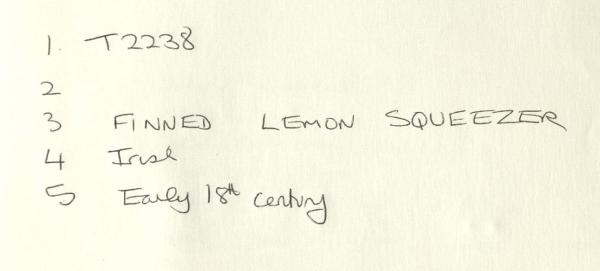 1. T2238
2
3 FINNED LEMON SQUEEZER
4 Irish
5 Early 18th century